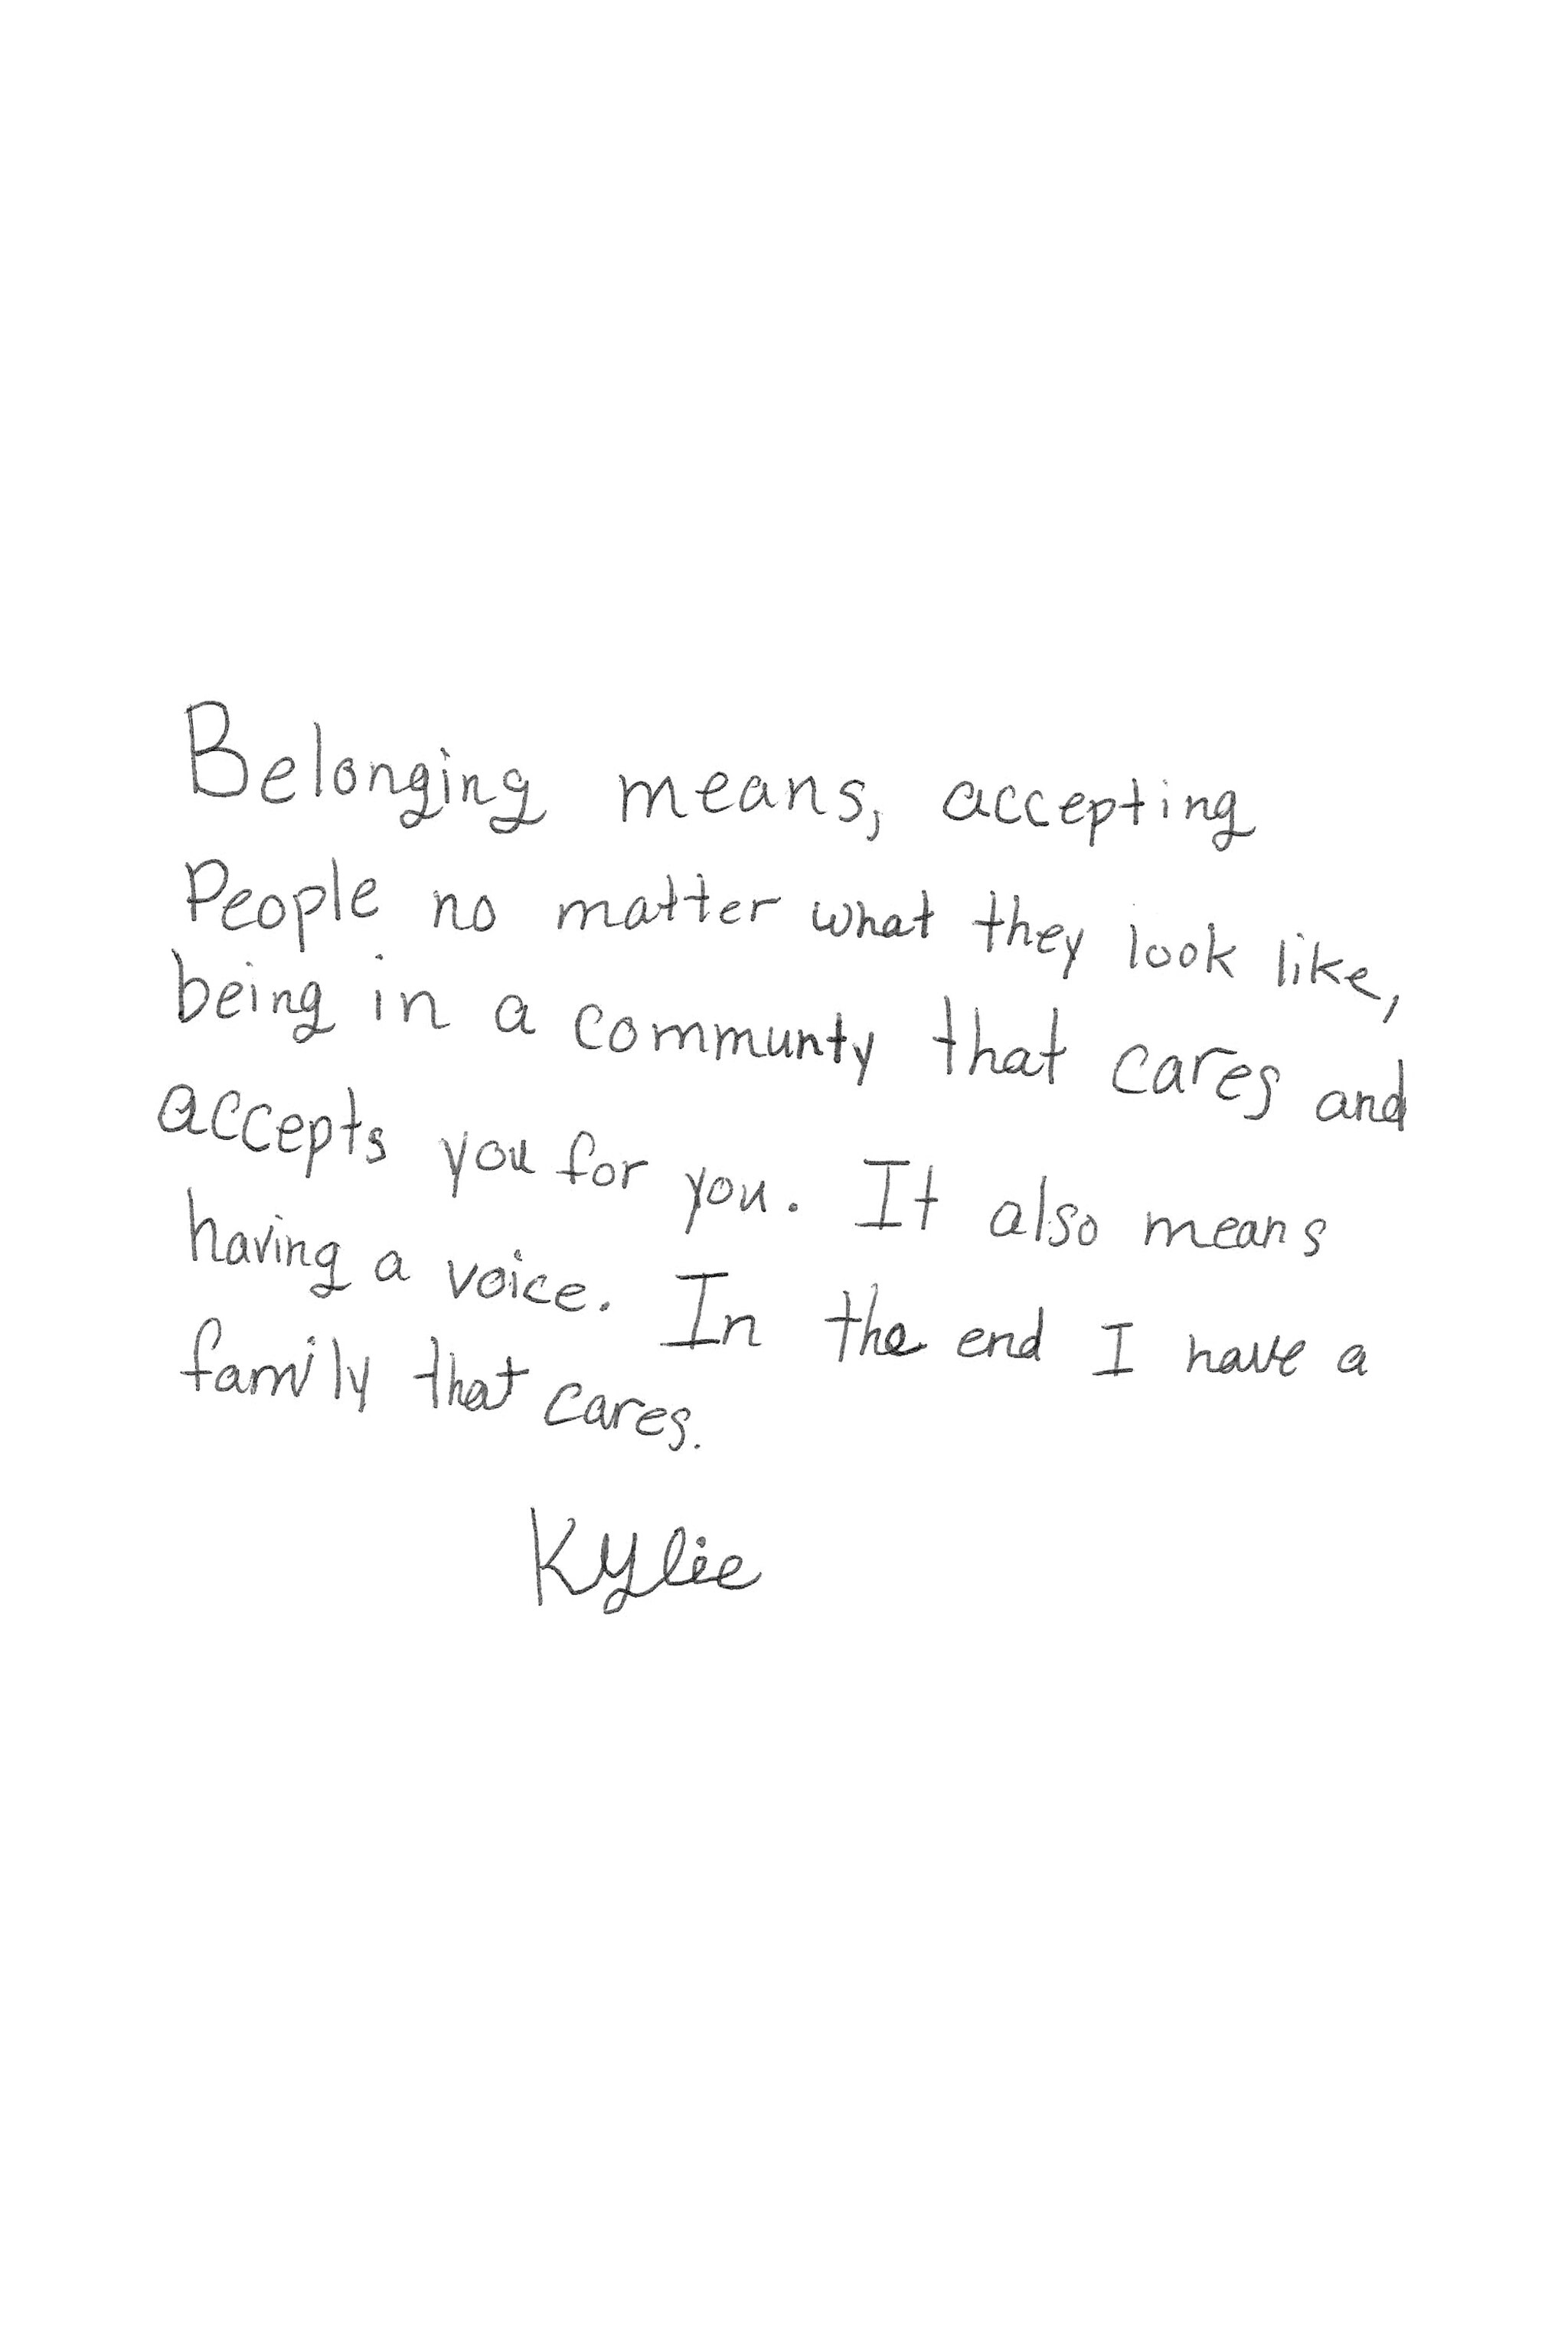 Belonging means, accepting
People no matter what they look like,
being in a communty that cares and
accepts you for you. It also means
having a voice. In the end I have a
family that cares.
Kylie